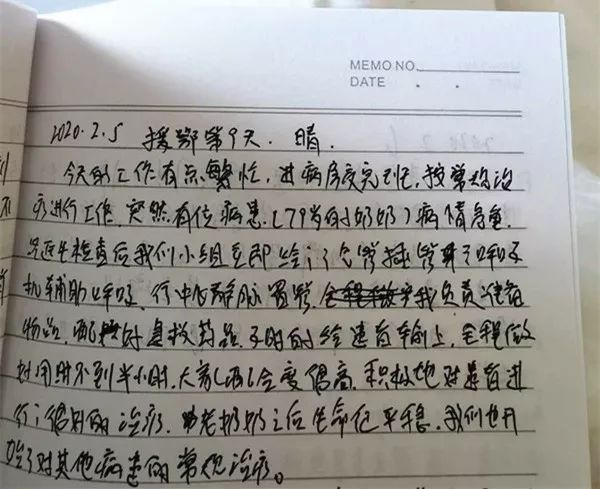 MEMO NO.
DATE . .
2020.2.5 援鄂第9天. 晴.
今天的工作有点繁忙,进病房交完班,按常规治
疗进行工作,突然有位病患(79岁的奶奶)病情危重,
医生检查后我们小组立即给予了气管插管,呼吸
机辅助呼吸,行中心静脉置管,我负责准备
物品,配合急救药品,及时的给患者输上,全程做
到用时不到半小时,大家配合度很高,积极地对患者进
行了很好的治疗,老奶奶之后生命征平稳,我们也开
始了对其他病患的常规治疗。